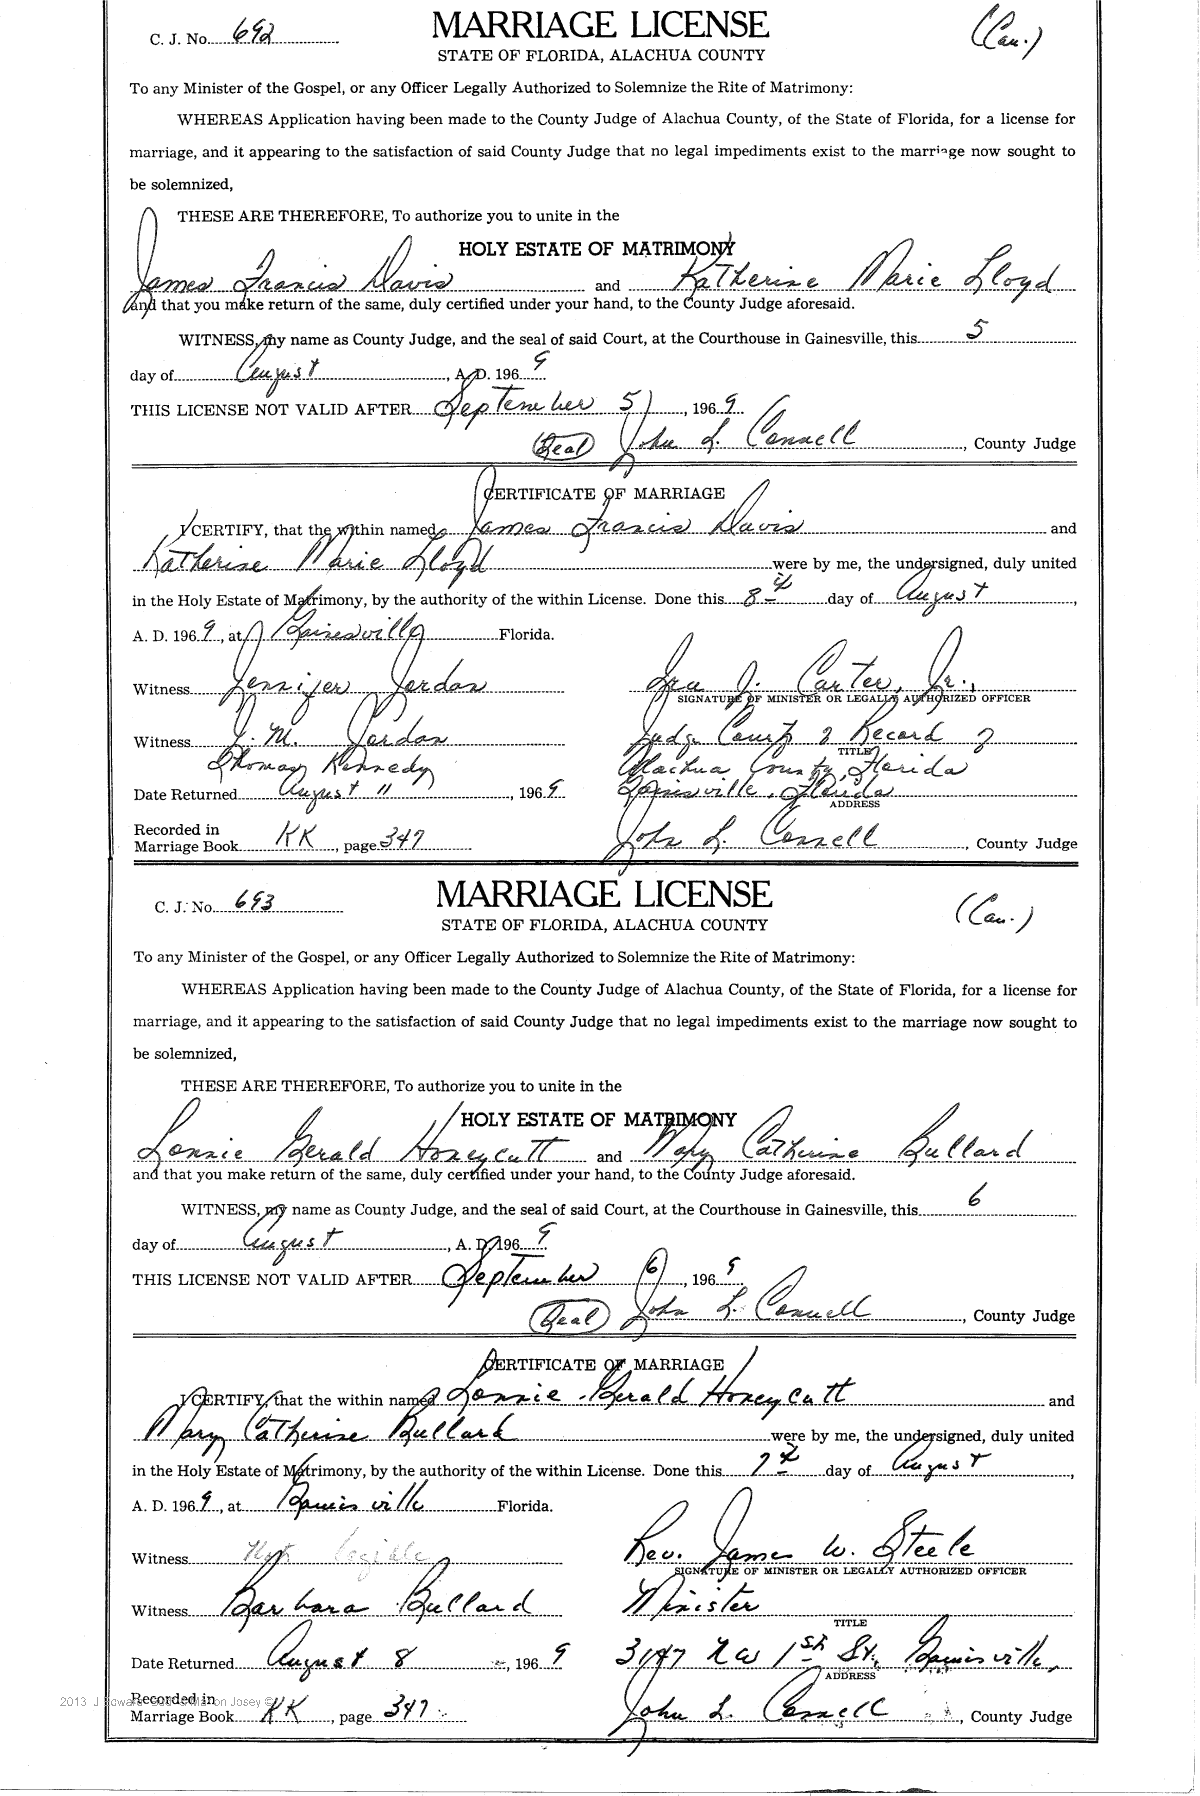 C. J. No. 692 MARRIAGE LICENSE (Cau.)
STATE OF FLORIDA, ALACHUA COUNTY
To any Minister of the Gospel, or any Officer Legally Authorized to Solemnize the Rite of Matrimony:
WHEREAS Application having been made to the County Judge of Alachua County, of the State of Florida, for a license for
marriage, and it appearing to the satisfaction of said County Judge that no legal impediments exist to the marriage now sought to
be solemnized,
THESE ARE THEREFORE, To authorize you to unite in the
HOLY ESTATE OF MATRIMONY
James Francis Davis and Katherine Marie Lloyd
and that you make return of the same, duly certified under your hand, to the County Judge aforesaid.
WITNESS, my name as County Judge, and the seal of said Court, at the Courthouse in Gainesville, this 5
day of August, A. D. 1969
THIS LICENSE NOT VALID AFTER September 5, 1969
(Seal) John L. Connell, County Judge
CERTIFICATE OF MARRIAGE
I CERTIFY, that the within named James Francis Davis and
Katherine Marie Lloyd were by me, the undersigned, duly united
in the Holy Estate of Matrimony, by the authority of the within License. Done this 8th day of August,
A. D. 1969, at Gainesville Florida.
Witness Jennifer Jordan Ira J. Carter, Jr.,
SIGNATURE OF MINISTER OR LEGALLY AUTHORIZED OFFICER
Witness J. M. Jordan Judge Court of Record of
TITLE
Thomas Kennedy Alachua County, Florida
Date Returned August 11, 1969 Gainesville, Florida
ADDRESS
Recorded in
Marriage Book KK, page 347 John L. Connell, County Judge
C. J. No. 693 MARRIAGE LICENSE (Cau.)
STATE OF FLORIDA, ALACHUA COUNTY
To any Minister of the Gospel, or any Officer Legally Authorized to Solemnize the Rite of Matrimony:
WHEREAS Application having been made to the County Judge of Alachua County, of the State of Florida, for a license for
marriage, and it appearing to the satisfaction of said County Judge that no legal impediments exist to the marriage now sought to
be solemnized,
THESE ARE THEREFORE, To authorize you to unite in the
HOLY ESTATE OF MATRIMONY
Lonnie Gerald Honeycutt and Mary Catherine Bullard
and that you make return of the same, duly certified under your hand, to the County Judge aforesaid.
WITNESS, my name as County Judge, and the seal of said Court, at the Courthouse in Gainesville, this 6
day of August, A. D. 1969
THIS LICENSE NOT VALID AFTER September 6, 1969
(Seal) John L. Connell, County Judge
CERTIFICATE OF MARRIAGE
I CERTIFY, that the within named Lonnie Gerald Honeycutt and
Mary Catherine Bullard were by me, the undersigned, duly united
in the Holy Estate of Matrimony, by the authority of the within License. Done this 7th day of August,
A. D. 1969, at Gainesville Florida.
Witness Not legible Rev. James W. Steele
SIGNATURE OF MINISTER OR LEGALLY AUTHORIZED OFFICER
Witness Barbara Bullard Minister
TITLE
Date Returned August 8, 1969 3147 NW 1st St., Gainesville,
ADDRESS
Recorded in
Marriage Book KK, page 347 John L. Connell, County Judge
2013 J Josey ©